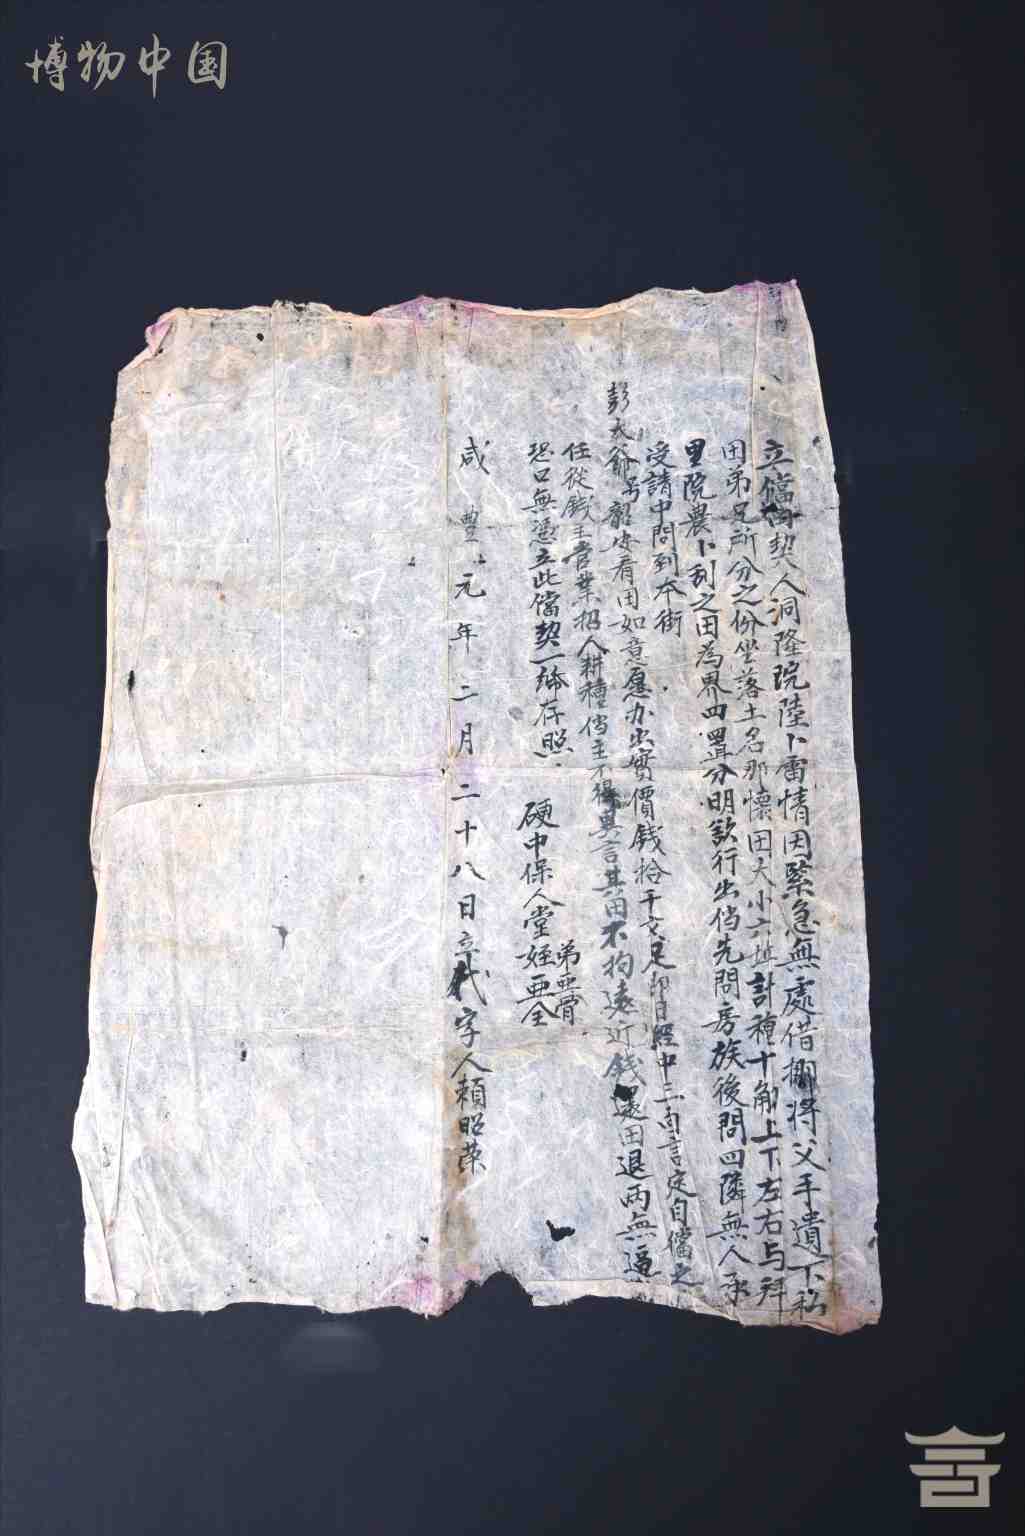 博物中国
立儅田契人洞隆院陸卜雷情因緊急無處借挪將父手遺下私
田弟兄所分之份坐落土名那懷田大小六坵計種十觔上下左右与拜
里院農卜利之田為界四置分明欲行出儅先問房族後問四隣無人承
受請中問到本街
彭大爺看田如意愿办出實價錢拾千文足即日經中三面言定自儅之
任從錢主管業招人耕種儅主不得異言其田不拘遠近錢還田退兩無逼
恐口無憑立此儅契一紙存照
硬中保人堂姪亞全
弟亞骨
咸豐元年二月二十八日立代字人賴昭荣